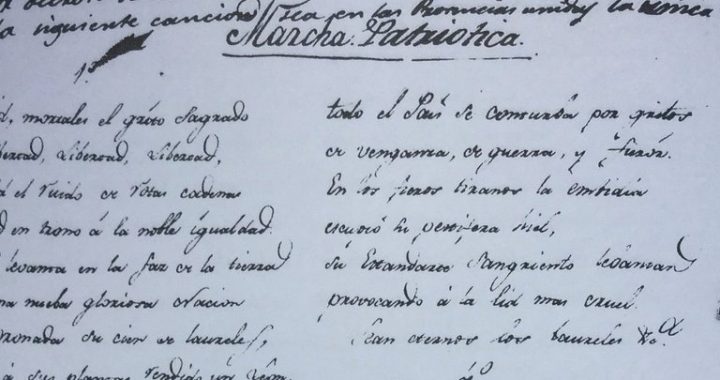 la siguiente cancion sea en las Provincias unidas la unica
Marcha Patriotica.
1.º
mortales el grito Sagrado
Libertad, Libertad,
el ruido de rotas cadenas
en trono á la noble igualdad.
levanta en la faz de la tierra
nueba gloriosa Nacion
su cien de laureles,
á sus plantas rendido un Leon.
todo el País se conturba por gritos
de venganza, de guerra, y furór.
En los fieros tiranos la embidia
escupió su pestifera hiel,
su Estandarte Sangriento levantan
provocando á la lid mas cruel.
Sean eternos los laureles &.a